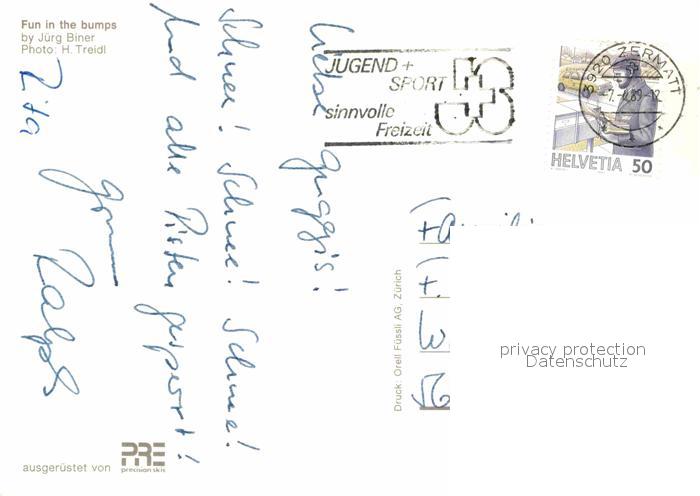 Fun in the bumps
by Jürg Biner
Photo: H. Treidl
JUGEND +
SPORT
sinnvolle
Freizeit
3920 ZERMATT
HELVETIA 50
Liebe
Schnee! Schnee! Schnee!
Und alle Pisten gesperrt!
Ralph
Zita
Druck: Orell Füssli AG, Zürich
privacy protection
Datenschutz
ausgerüstet von PRE
precision skis